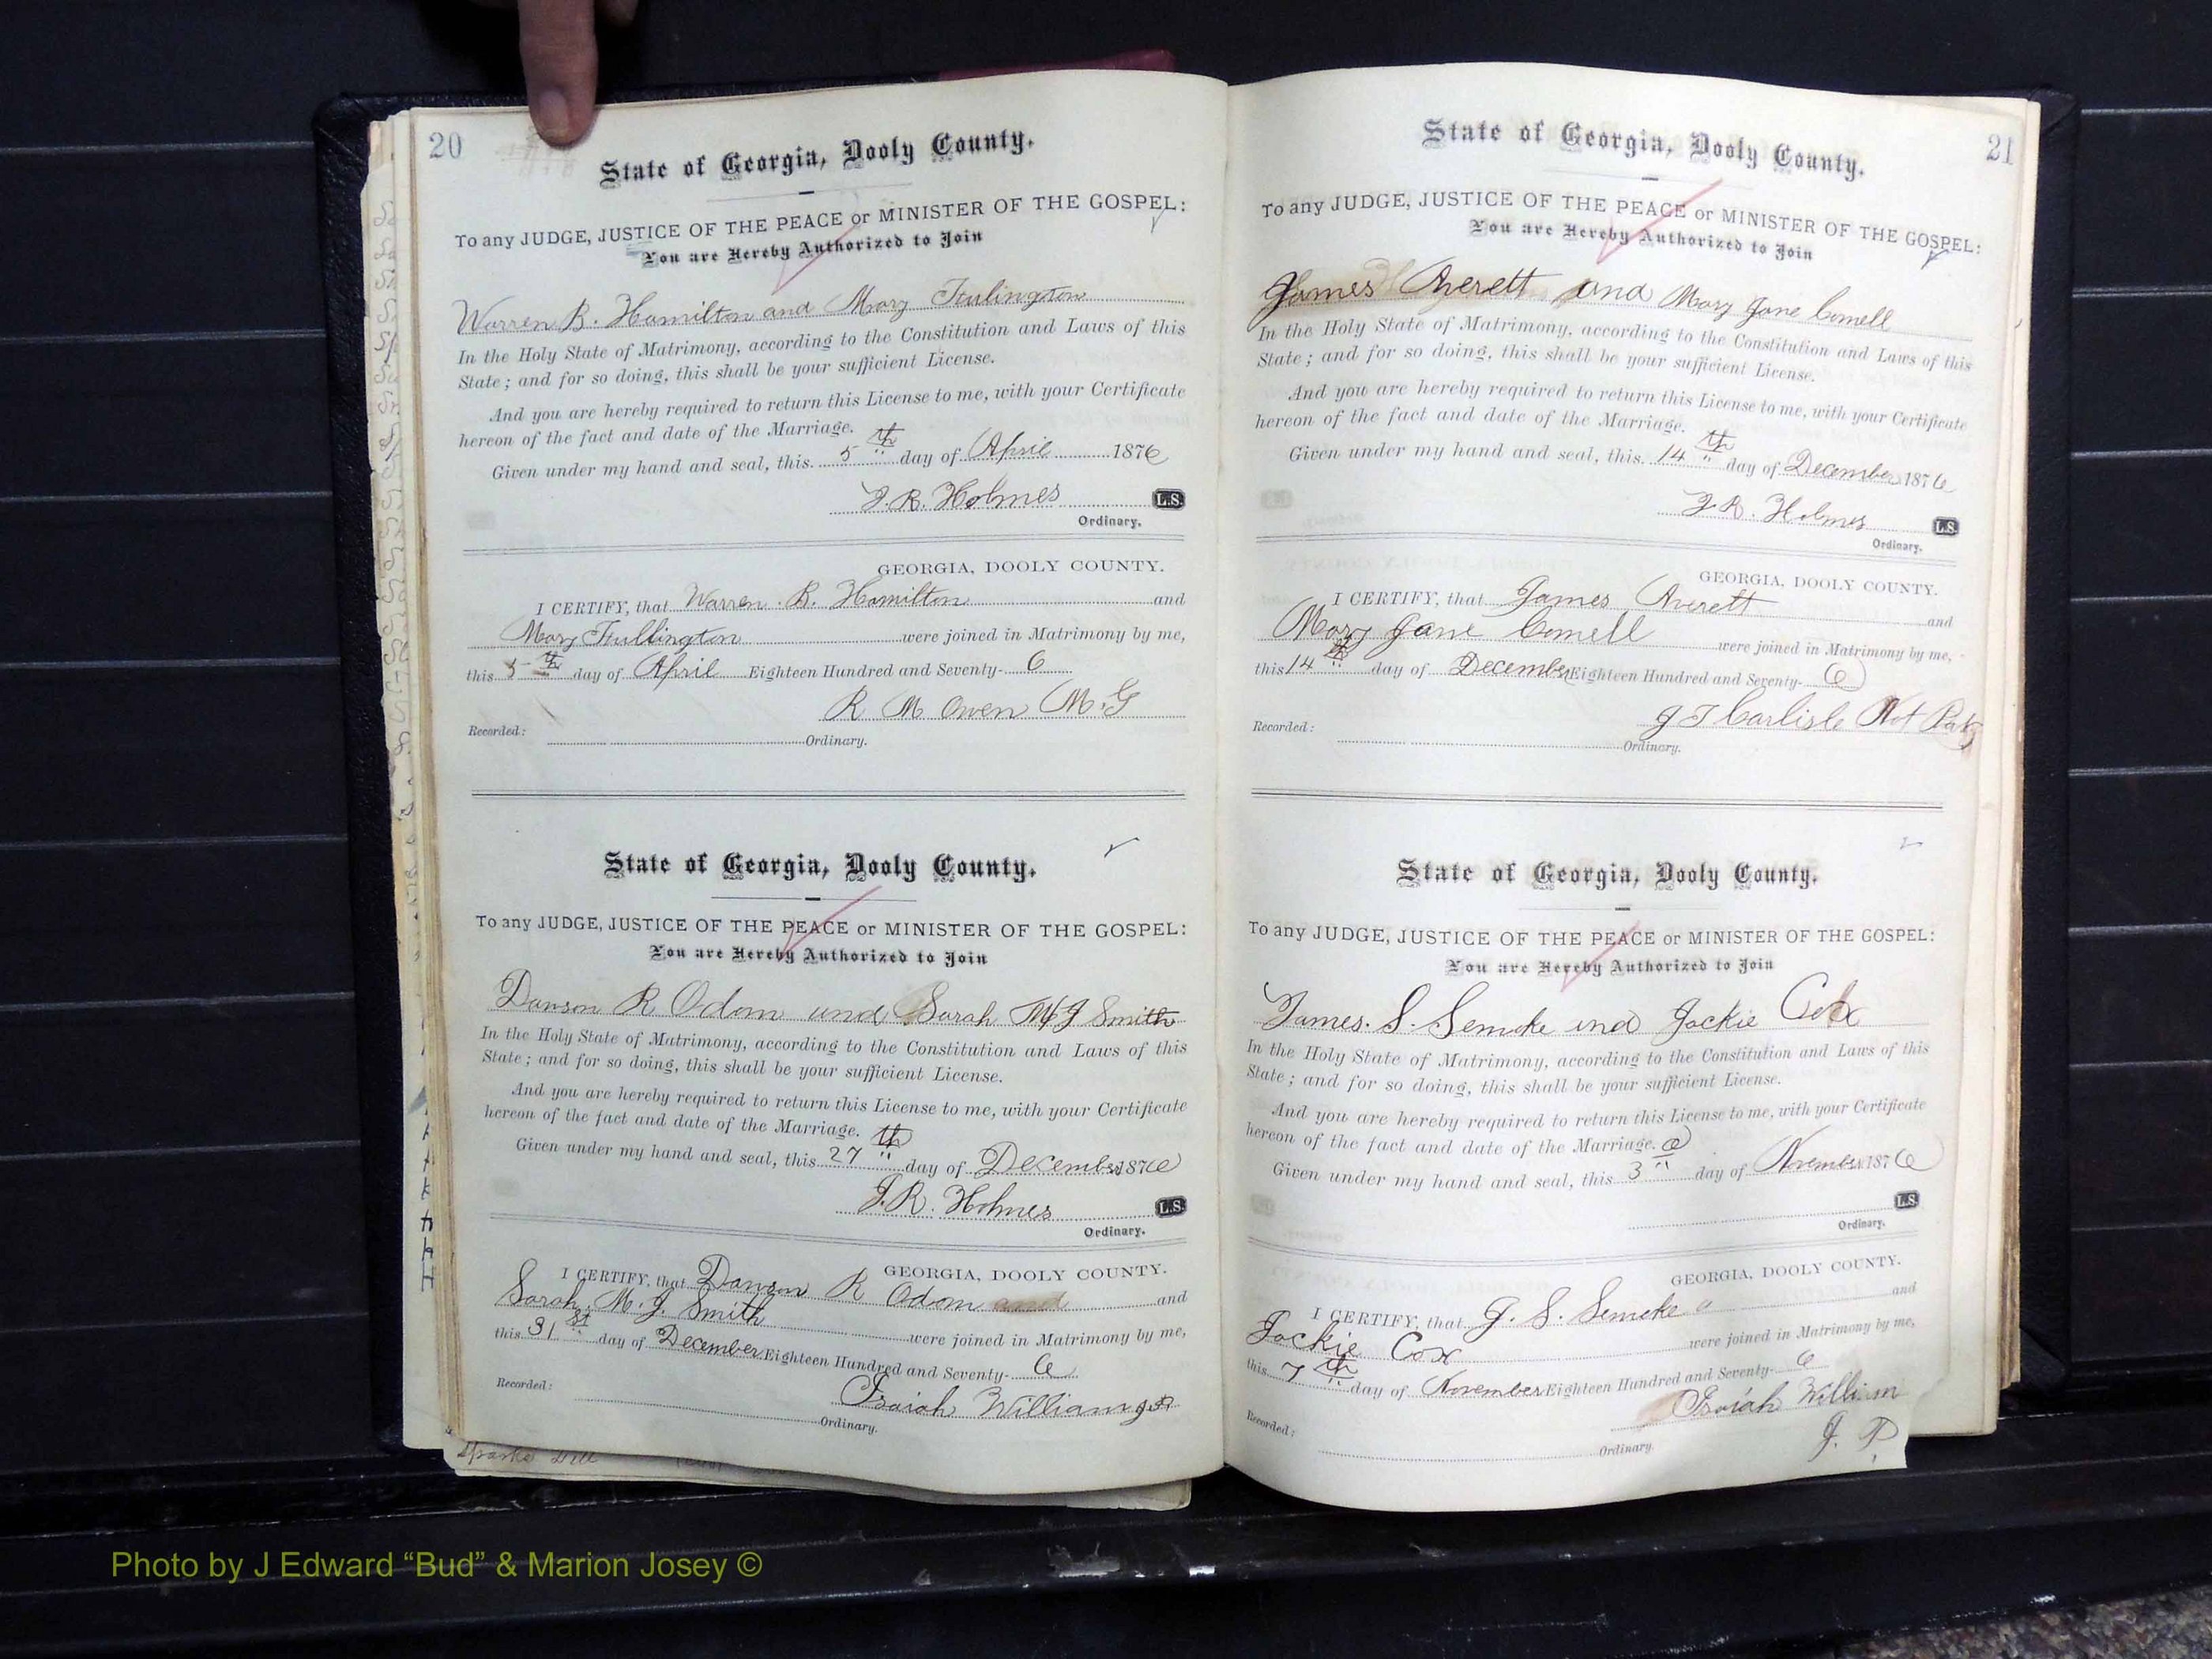 20
State of Georgia, Dooly County.
To any JUDGE, JUSTICE OF THE PEACE or MINISTER OF THE GOSPEL:
You are Hereby Authorized to Join
Warren B. Hamilton and Mary
In the Holy State of Matrimony, according to the Constitution and Laws of this
State; and for so doing, this shall be your sufficient License.
And you are hereby required to return this License to me, with your Certificate
hereon of the fact and date of the Marriage.
Given under my hand and seal, this 5th day of April 1876
J. R. Holmes L.S.
Ordinary.
GEORGIA, DOOLY COUNTY.
I CERTIFY, that Warren B. Hamilton and
Mary were joined in Matrimony by me,
this 5th day of April Eighteen Hundred and Seventy- 6
R M Owen M.G
Recorded: Ordinary.
State of Georgia, Dooly County.
To any JUDGE, JUSTICE OF THE PEACE or MINISTER OF THE GOSPEL:
You are Hereby Authorized to Join
Dawson R Odom and Sarah M J Smith
In the Holy State of Matrimony, according to the Constitution and Laws of this
State; and for so doing, this shall be your sufficient License.
And you are hereby required to return this License to me, with your Certificate
hereon of the fact and date of the Marriage.
Given under my hand and seal, this 27th day of December 1876
J. R. Holmes L.S.
Ordinary.
GEORGIA, DOOLY COUNTY.
I CERTIFY, that Dawson R Odom and and
Sarah M. J. Smith were joined in Matrimony by me,
this 31st day of December Eighteen Hundred and Seventy- 6
Isaiah Williams JP
Recorded: Ordinary.
21
State of Georgia, Dooly County.
To any JUDGE, JUSTICE OF THE PEACE or MINISTER OF THE GOSPEL:
You are Hereby Authorized to Join
James Averett and Mary Jane Connell
In the Holy State of Matrimony, according to the Constitution and Laws of this
State; and for so doing, this shall be your sufficient License.
And you are hereby required to return this License to me, with your Certificate
hereon of the fact and date of the Marriage.
Given under my hand and seal, this 14th day of December 1876
J. R. Holmes L.S.
Ordinary.
GEORGIA, DOOLY COUNTY.
I CERTIFY, that James Averett and
Mary Jane Connell were joined in Matrimony by me,
this 14th day of December Eighteen Hundred and Seventy- 6
J T Carlisle Not Pub
Recorded: Ordinary.
State of Georgia, Dooly County.
To any JUDGE, JUSTICE OF THE PEACE or MINISTER OF THE GOSPEL:
You are Hereby Authorized to Join
James. S. and Jackie Cox
In the Holy State of Matrimony, according to the Constitution and Laws of this
State; and for so doing, this shall be your sufficient License.
And you are hereby required to return this License to me, with your Certificate
hereon of the fact and date of the Marriage.
Given under my hand and seal, this 3d day of November 1876
L.S.
Ordinary.
GEORGIA, DOOLY COUNTY.
I CERTIFY, that J. S. and
Jackie Cox were joined in Matrimony by me,
this 7th day of November Eighteen Hundred and Seventy- 6
Isaiah William
J. P.
Recorded: Ordinary.
Photo by J Edward “Bud” & Marion Josey ©